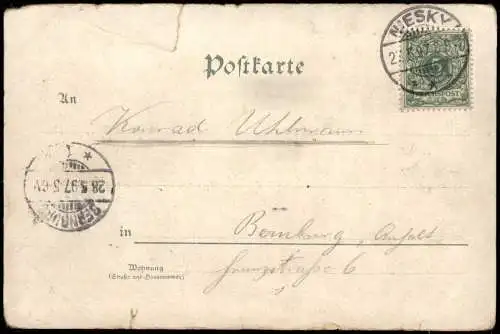 NIESKY
5
REICHSPOST
Postkarte
An
Konrad Uhlmann
BERNBURG
28.5.97. 5-6 V
in Bernburg, Anhalt
6
Wohnung
(Straße und Hausnummer)